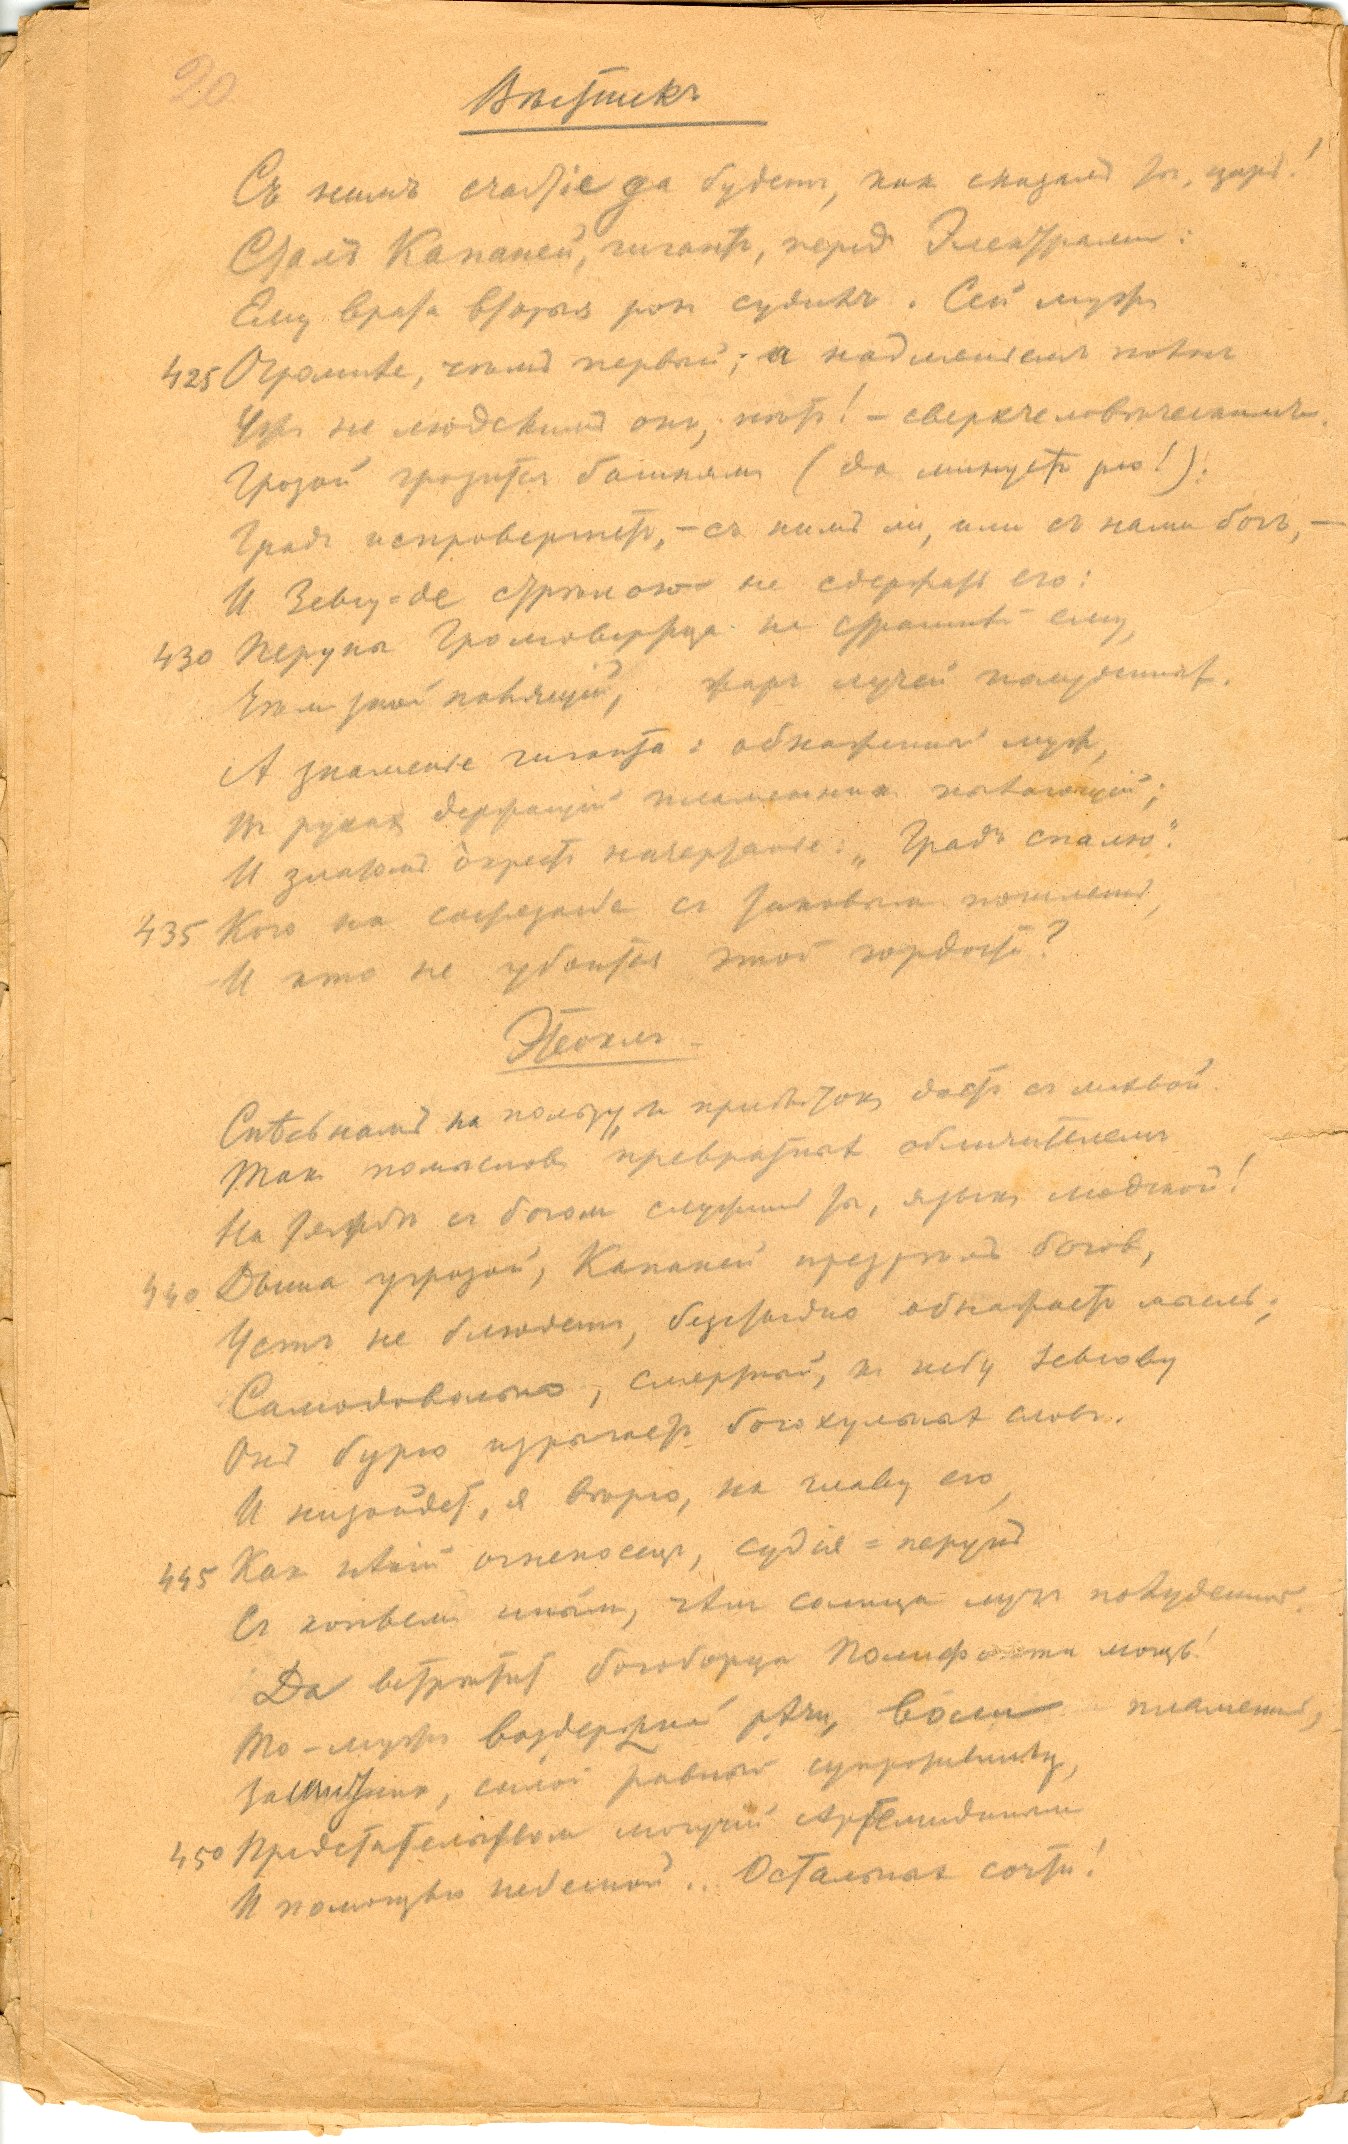 20
Вѣстникъ
Съ нимъ счастіе да будетъ, как сказалъ ты, царь!
Сталъ Капаней, гигантъ, передъ Электрами:
Ему врата вторыя рок судилъ. Сей мужъ
425 Огромнѣе, чѣмъ первый; а надменьемъ
Ужъ не людскимъ он, нѣтъ! – сверхчеловѣческимъ.
Грозой грозится башнямъ (да минуетъ рок!):
Градъ испровергнетъ, – съ нимъ ли, или съ нами богъ, –
И Зевсу-де стрѣлою не сдержать его:
430 Перуны Громовержца не страшнѣй ему,
Чѣм зной палящій, жаръ лучей полуденныхъ.
А знаменье гиганта: обнаженный муж,
Въ руках держащій пламенник пылающій;
И златомъ окрестъ начертанье: „Градъ спалю“.
435 Кого на состязанье съ таковым пошлешь,
И кто не убоится этой гордости?
Этеоклъ
Спѣсь намъ на пользу, и прибыток дастъ съ лихвой.
Так помыслов превратных обличителемъ
На тяжбѣ съ богом служишь ты, язык людской!
440 Дыша угрозой, Капаней презрѣлъ богов,
Устъ не блюдетъ, безстыдно обнажаетъ мысль;
Самодовольно, смертный, къ небу Зевсову
Онъ бурю изрыгаетъ богохульных словъ.
И низойдет, я вѣрю, на главу его,
445 Как нѣкій огненосецъ, судія-перунъ
Съ копьем иным, чѣм солнца лучъ полуденный.
Да встрѣтит богоборца Полифонта мощь!
То – мужъ воздержный рѣчи, волей пламенный,
Защитник, силой равный супротивнику,
450 Предстательством могучій Артемидиным
И помощью небесной.. Остальных сочти!